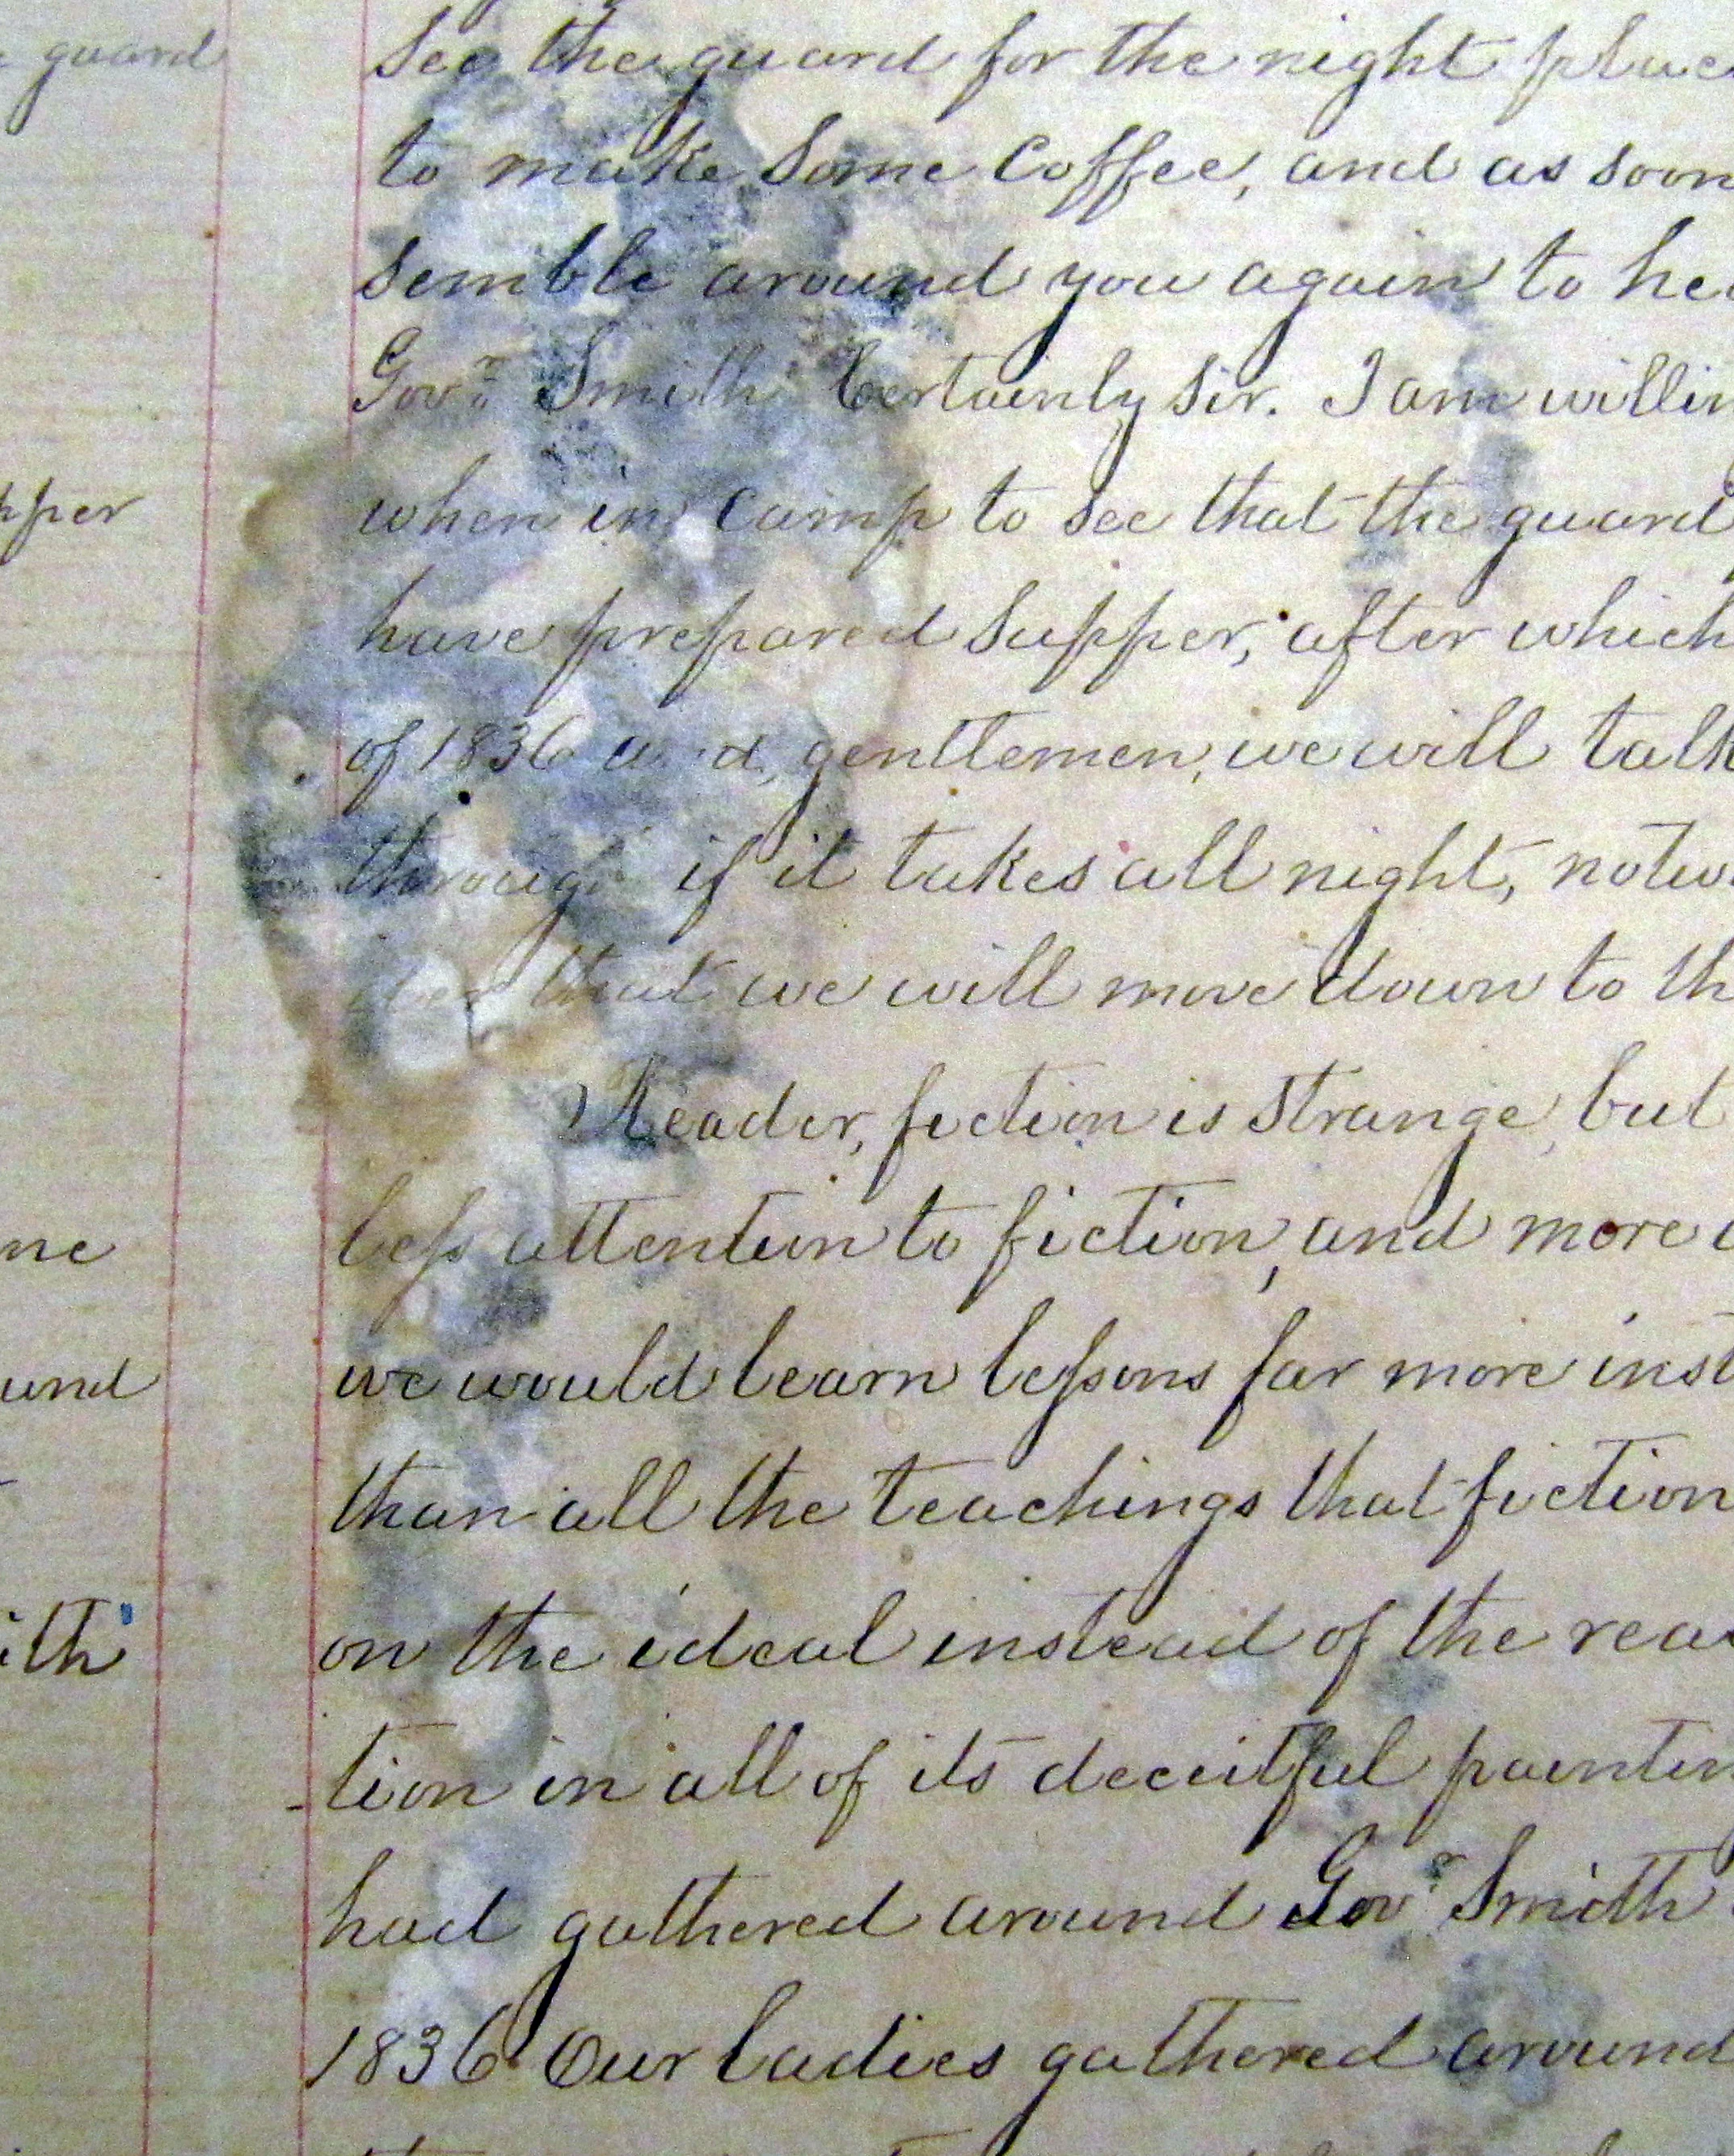 guard
see the guard for the night place
to make some coffee, and as soon
semble around you again to hea
Govr. Smith Certainly sir. I am willin
pper
when in camp to see that the guard
have prepared supper; after which
of 1836 and, gentlemen, we will talk
through if it takes all night, notwi
that we will move down to th
Reader, fiction is strange, but
less attention to fiction, and more
ne
we would learn lessons far more inst
und
than all the teachings that fiction
on the ideal instead of the rea
ith
tion in all of its deceitful paintin
had gathered around Govr. Smith
1836 Our ladies gathered around